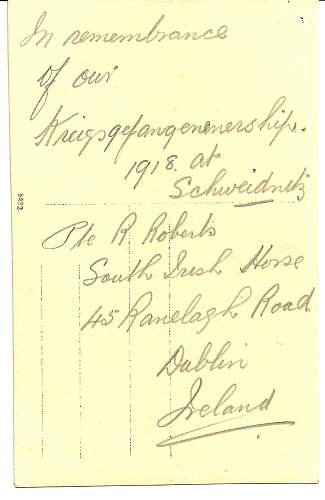 In remembrance
of our
Kreigsgefangenenership.
1918. at
Schweidnitz
Pte R Roberts
South Irish Horse
45 Ranelagh Road
Dublin
Ireland